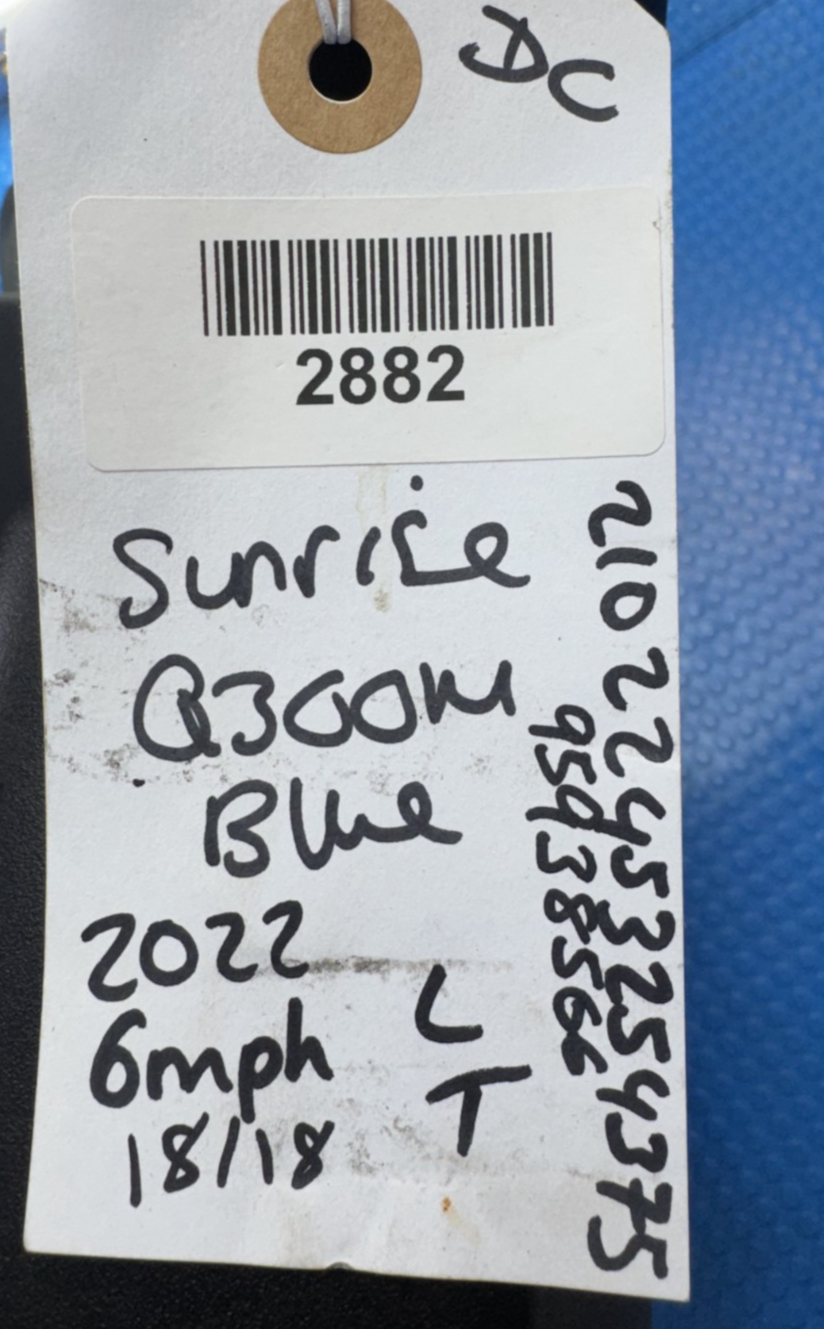 DC
2882
Sunrise
Q300M
Blue
2022
6mph
18/18
L
T
21022453254375
95938566